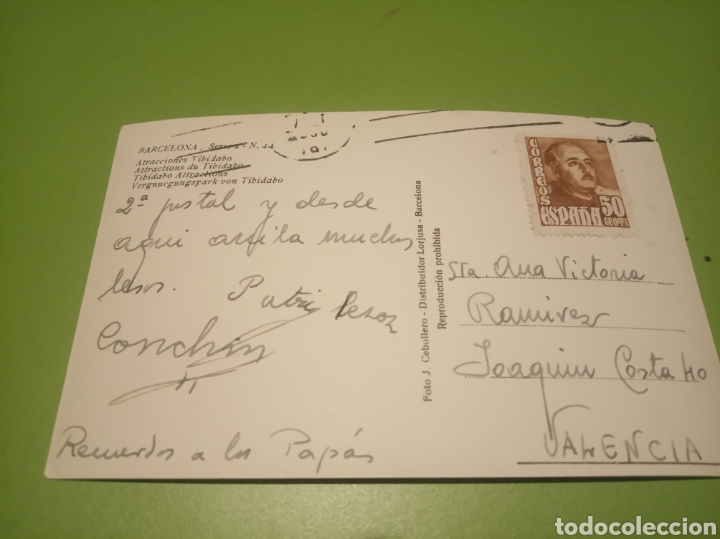 BARCELONA. Serie - N. 44
Atracciones Tibidabo
Attractions du Tibidabo
Tibidabo Attractions
Vergnuegungspark von Tibidabo
2ª postal y desde
aqui muchos
besos. Patri besos
Conchin
Recuerdos a los Papás
Foto J. Cebollero - Distribuidor Lorjusa - Barcelona
Reproducción prohibida
CORREOS
ESPAÑA 50
CENTS
Sta. Ana Victoria
Ramirez
Joaquim Costa 40
VALENCIA
todocoleccion